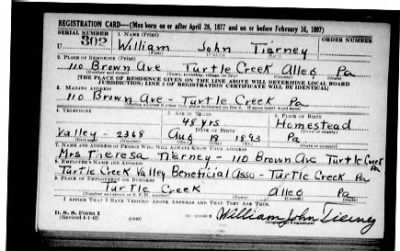 REGISTRATION CARD—(Men born on or after April 28, 1877 and on or before February 16, 1897)
SERIAL NUMBER 1. NAME (Print) ORDER NUMBER
U 302 William John Tierney
(First) (Middle) (Last)
2. PLACE OF RESIDENCE (Print)
110 Brown Ave Turtle Creek Alleg Pa
(Number and street) (Town, township, village, or city) (County) (State)
[THE PLACE OF RESIDENCE GIVEN ON THE LINE ABOVE WILL DETERMINE LOCAL BOARD
JURISDICTION; LINE 2 OF REGISTRATION CERTIFICATE WILL BE IDENTICAL]
3. MAILING ADDRESS
110 Brown Ave - Turtle Creek Pa
4. TELEPHONE 5. AGE IN YEARS 6. PLACE OF BIRTH
48 yrs Homestead
DATE OF BIRTH
Valley - 2368 Aug 19 1893 Pa
7. NAME AND ADDRESS OF PERSON WHO WILL ALWAYS KNOW YOUR ADDRESS
Mrs Theresa Tierney - 110 Brown Ave Turtle Creek Pa
8. EMPLOYER'S NAME AND ADDRESS
Turtle Creek Valley Beneficial Asso - Turtle Creek Pa
9. PLACE OF EMPLOYMENT OR BUSINESS
Turtle Creek Alleg Pa
I AFFIRM THAT I HAVE VERIFIED ABOVE ANSWERS AND THAT THEY ARE TRUE.
D. S. S. Form 1
(Revised 4-1-42) William John Tierney